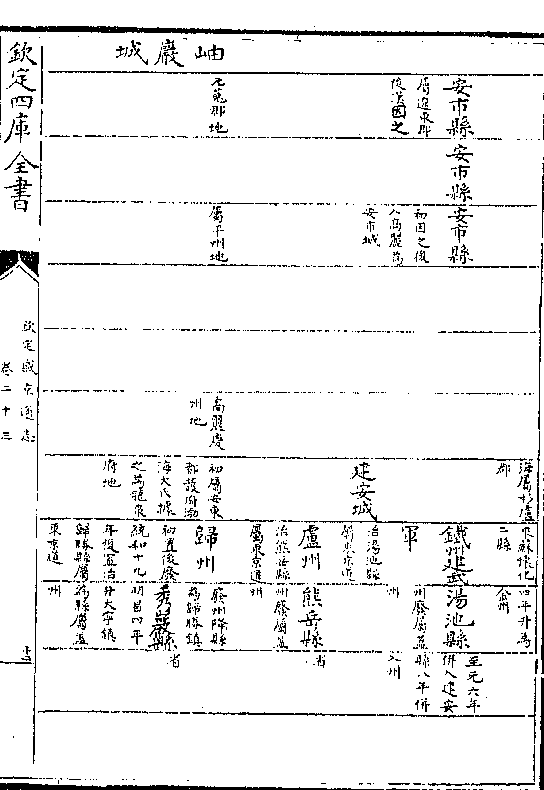 欽定四庫全書
欽定盛京通志
卷二十三
岫巖城
安市縣
屬遼東郡
後漢因之
元菟郡地
安市縣
安市縣
初因之後
入高麗為
安市城
屬平州地
高麗慶
州地
海屬杉盧
郡
建安城
初屬安東
都護府渤
海大氏據
之為龍泉
府地
來蘇懷化
二縣
鐵州建武
軍
治湯池縣
屬東京道
盧州
治熊岳縣
屬東京道
歸州
初置後廢
統和十九
年復置治
歸勝縣屬
東京道
四年升為
金州
湯池縣
州廢屬蓋
州
熊岳縣
州廢屬蓋
州
州廢降縣
為歸勝鎮
秀巖縣
明昌四年
升大寧鎮
為縣屬蓋
州
至元六年
併入建安
縣八年併
入州
省
省